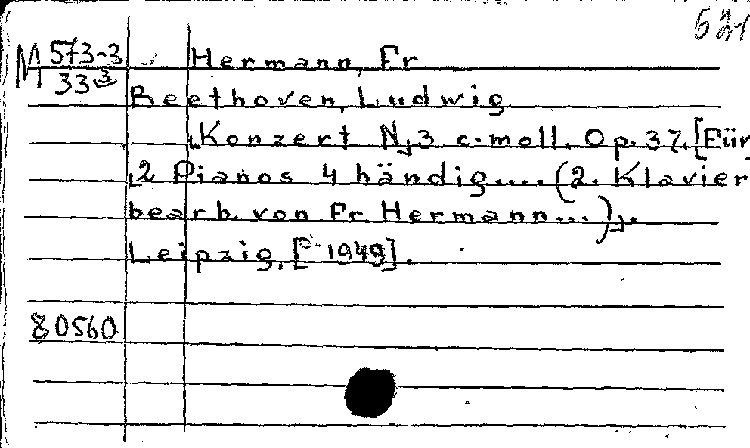 521
M 573-3 Hermann, Fr
33³
Beethoven, Ludwig
Konzert N 3 c-moll. Op. 37. [Für
2 Pianos 4 händig.... (2. Klavier
bearb. von Fr. Hermann...).
Leipzig, [ 1949].
80560